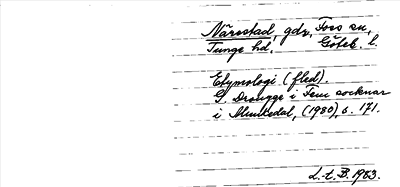 Närestad, gdr, Foss sn,
Tunge hd. Göteb. l.
Etymologi (fled).
G. Drougge i Fem socknar
i Munkedal, (1980), s. 171.
L. t. B. 1983.